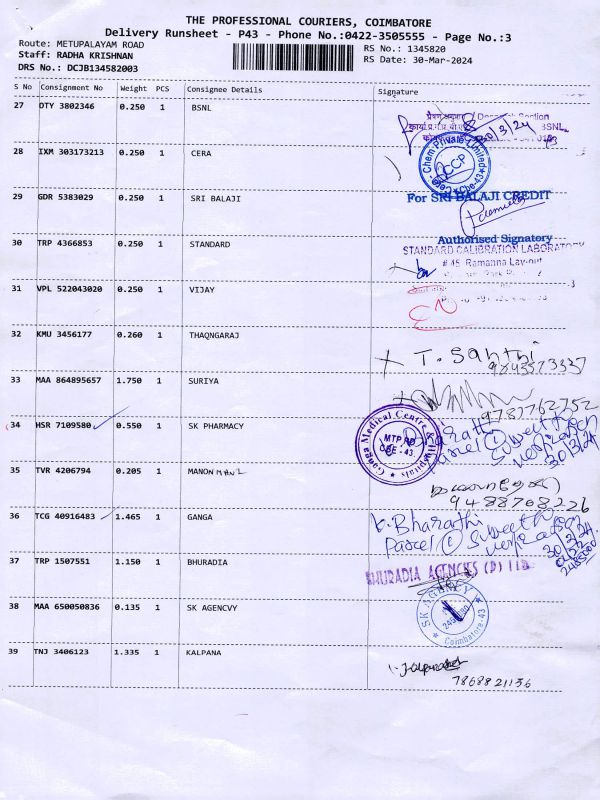 THE PROFESSIONAL COURIERS, COIMBATORE
Delivery Runsheet - P43 - Phone No.:0422-3505555 - Page No.:3
Route: METUPALAYAM ROAD
Staff: RADHA KRISHNAN
DRS No.: DCJB134582003
RS No.: 1345820
RS Date: 30-Mar-2024
S No Consignment No Weight PCS Consignee Details Signature
27 DTY 3802346 0.250 1 BSNL
BSNL
30/3/24
28 IXM 303173213 0.250 1 CERA
Chem Private Limited
CCP
Cbe-43
29 GDR 5383029 0.250 1 SRI BALAJI
For SRI BALAJI CREDIT
Authorised Signatory
30 TRP 4366853 0.250 1 STANDARD
STANDARD CALIBRATION LABORATORY
# 45, Ramanna Lay-out
31 VPL 522043020 0.250 1 VIJAY
32 KMU 3456177 0.260 1 THAQNGARAJ
T. Santhi
33 MAA 864895657 1.750 1 SURIYA
9787762752
34 HSR 7109580 0.550 1 SK PHARMACY
Ganga Medical Centre & Hospitals
MTP RD
CBE - 43.
Bharathi
Parcel
30/3/24
35 TVR 4206794 0.205 1 MANON MANI
9488708226
36 TCG 40916483 1.465 1 GANGA
K. Bharathi
Parcel
30/3/24
37 TRP 1507551 1.150 1 BHURADIA
BHURADIA AGENCIES (P) LTD
38 MAA 650050836 0.135 1 SK AGENCVY
SK AGENCY
Coimbatore-43
39 TNJ 3406123 1.335 1 KALPANA
7868821136